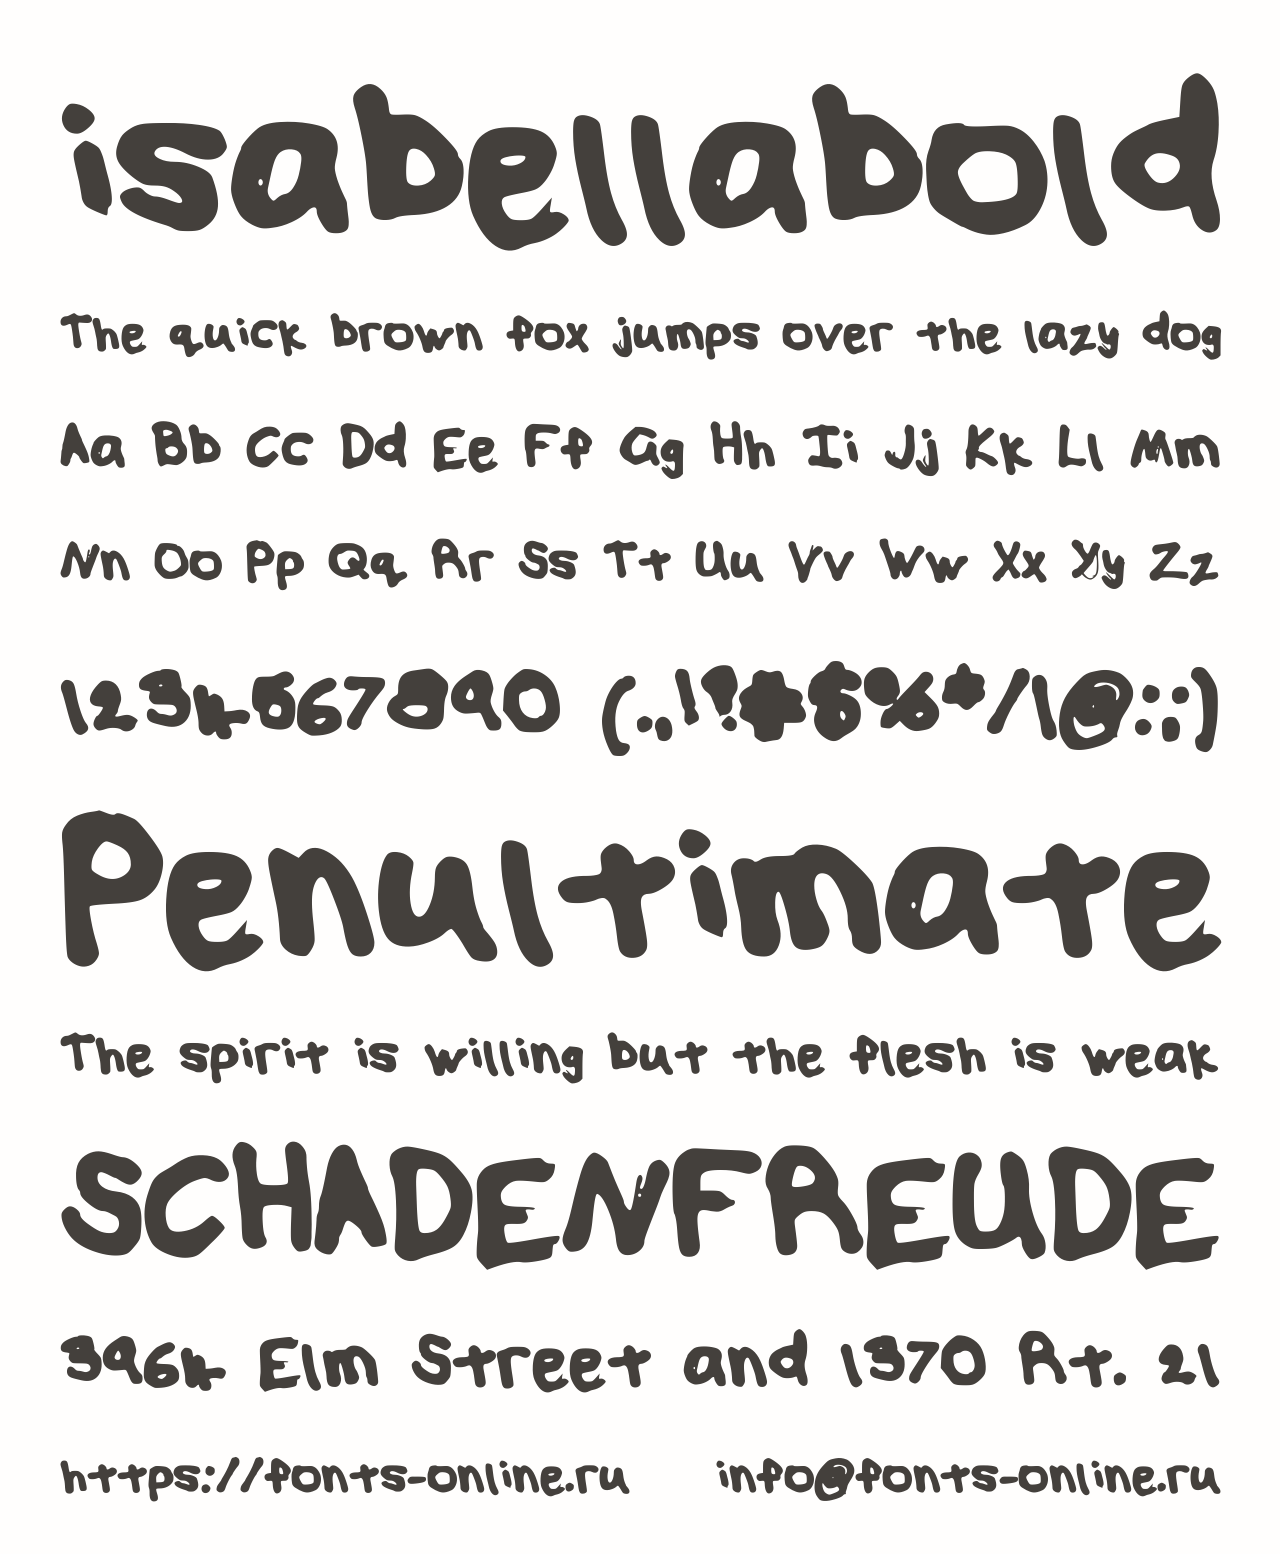 isabellabold
The quick brown fox jumps over the lazy dog
Aa Bb Cc Dd Ee Ff Gg Hh Ii Jj Kk Ll Mm
Nn Oo Pp Qq Rr Ss Tt Uu Vv Ww Xx Yy Zz
1234567890 (.,!?#$%*/\@:;)
Penultimate
The spirit is willing but the flesh is weak
SCHADENFREUDE
3964 Elm Street and 1370 Rt. 21
https://fonts-online.ru info@fonts-online.ru